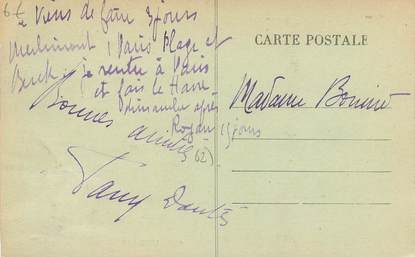 6 f
Viens de faire 3 jours
Merlimont, Paris Plage et
Berck, je rentre à Paris
et fais le Havre
dimanche après
Royan 15 jours
Bonnes amitiés
(62)
Dantès
CARTE POSTALE
Madame